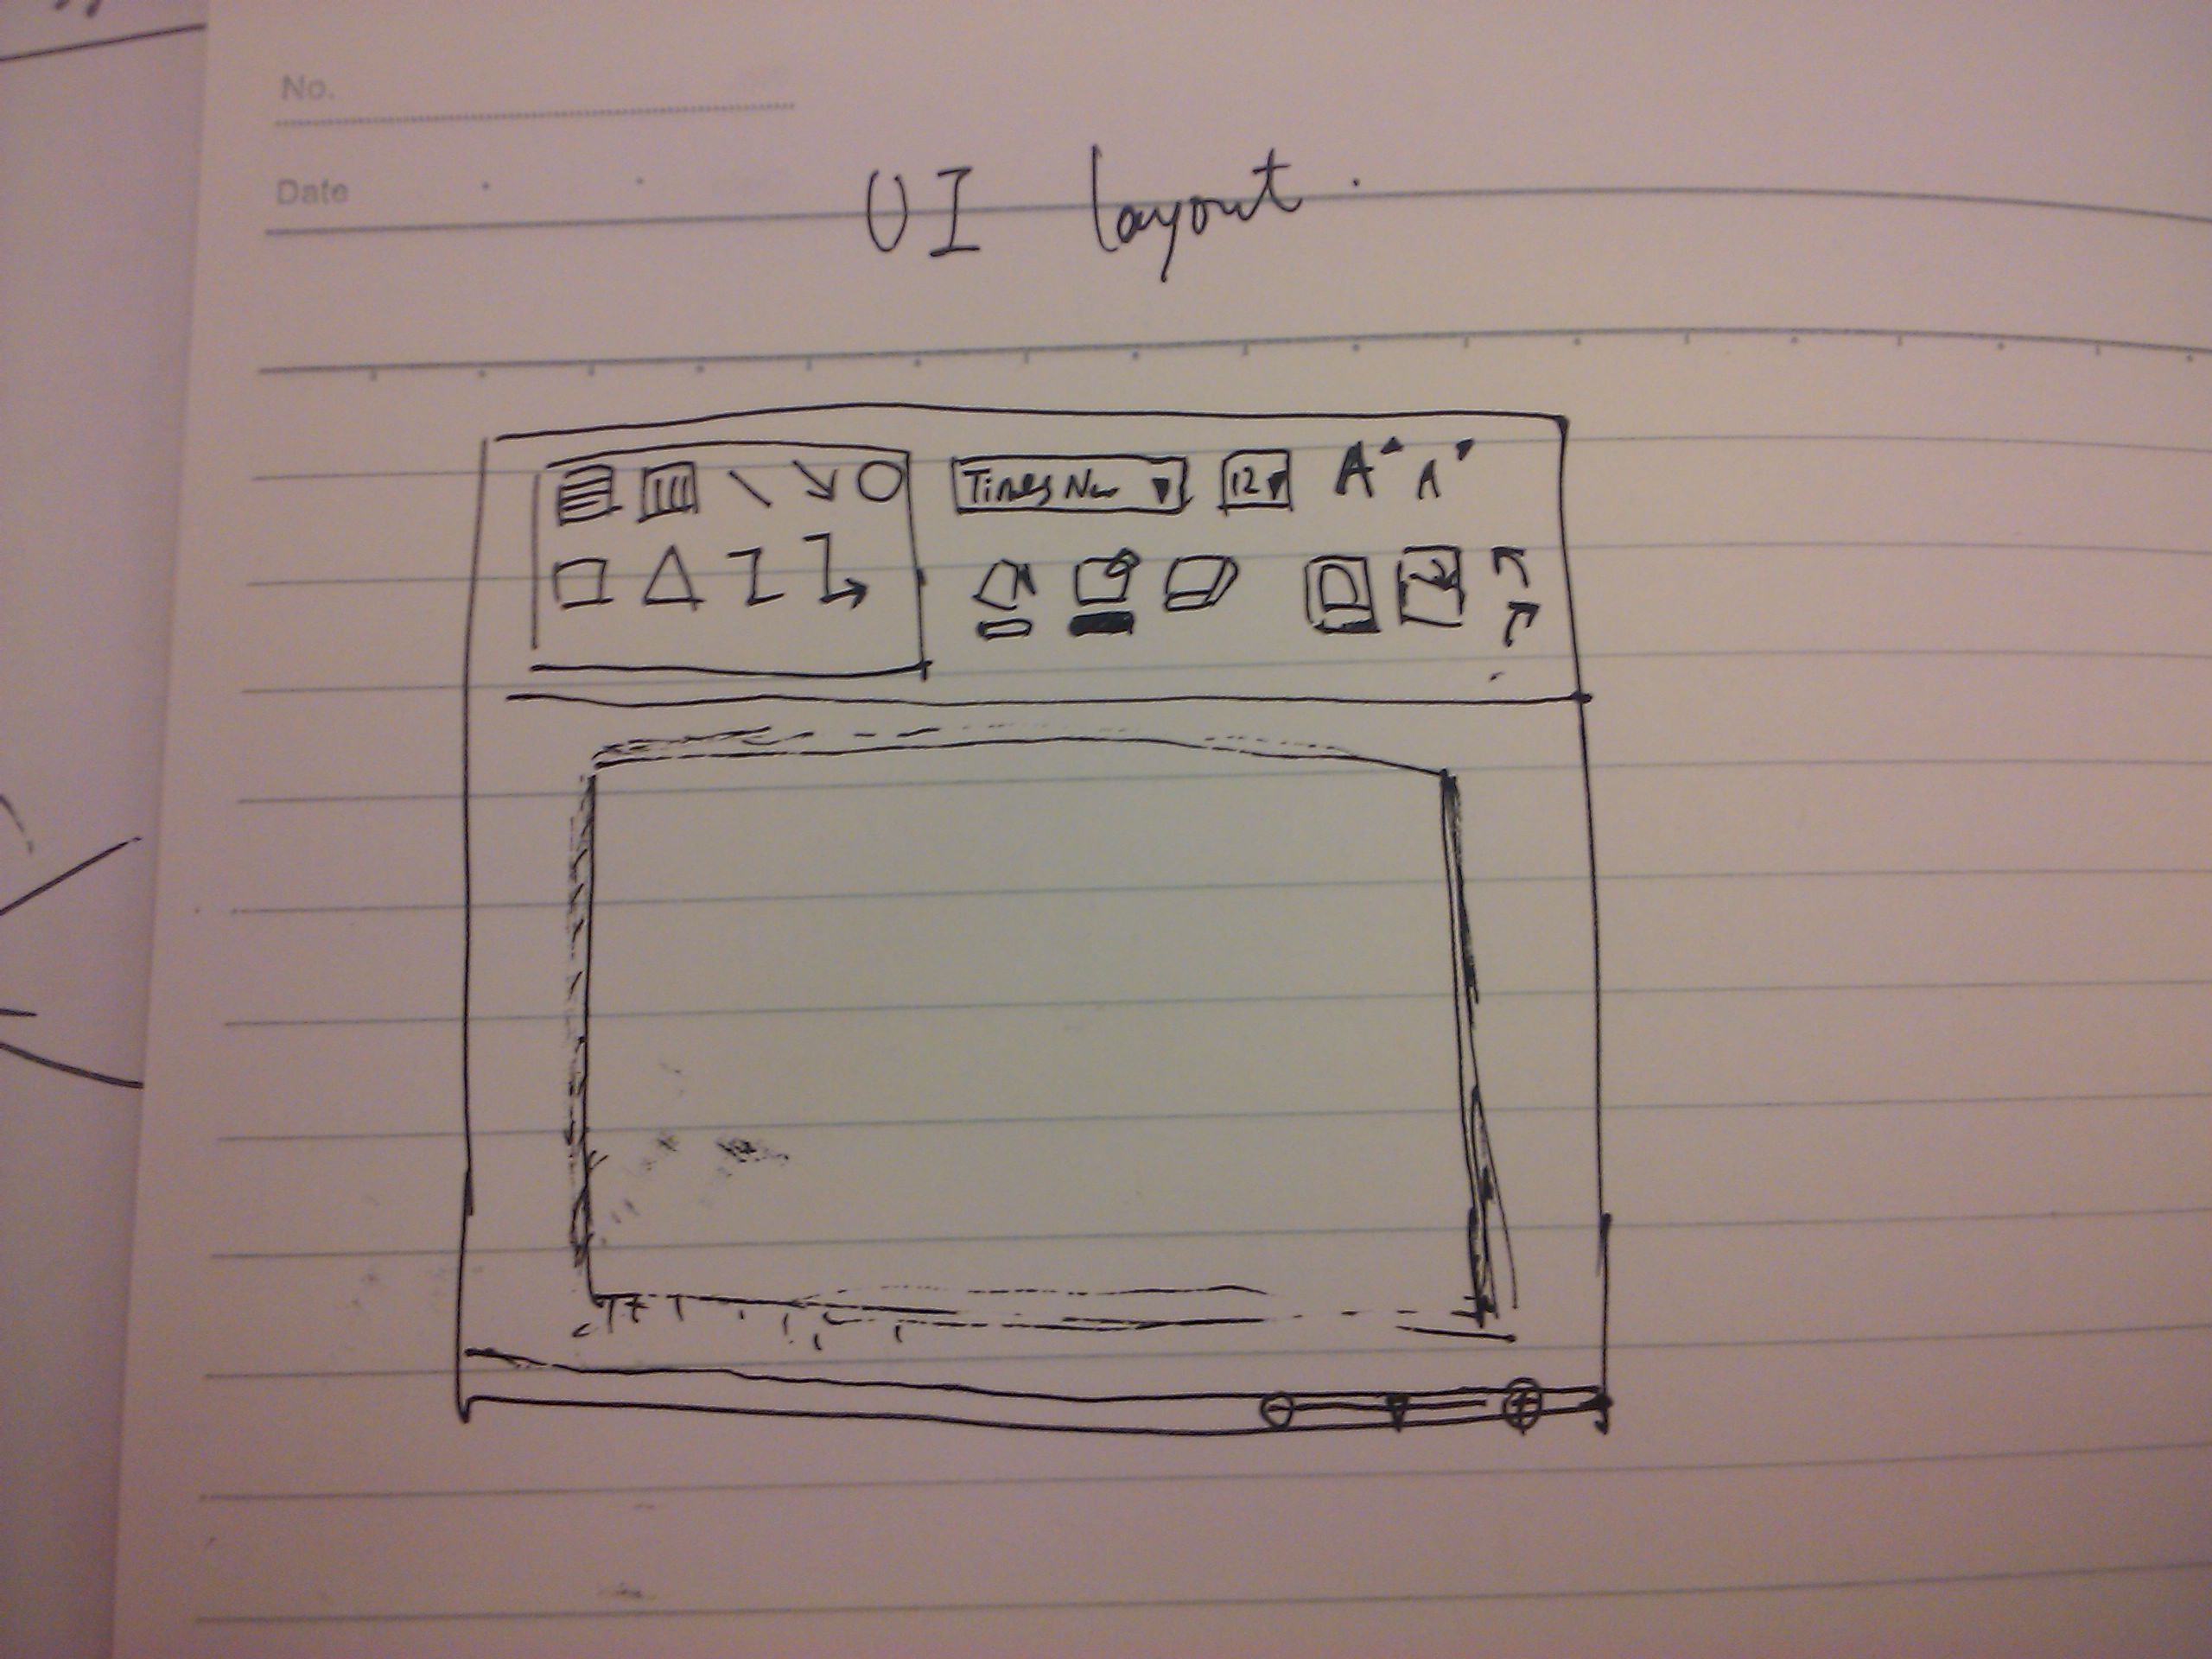 No.
Date
UI layout.
Times New 12 A A